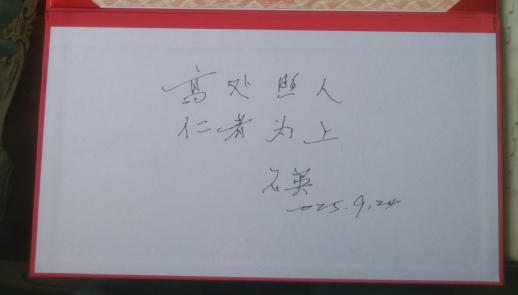 高处照人
仁者为上
石英
2025.9.24